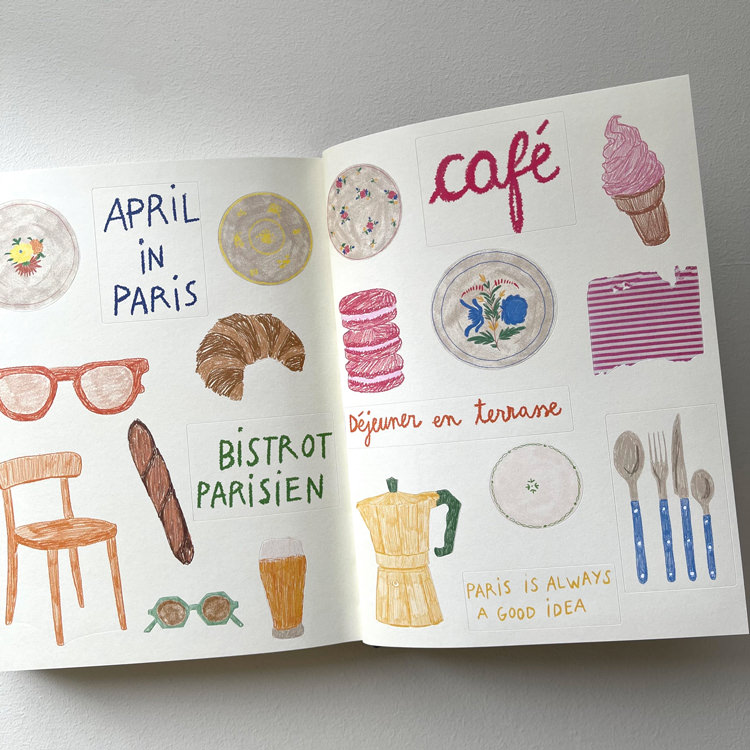 APRIL
iN
PARiS
BiSTROT
PARiSiEN
café
Déjeuner en terrasse
PARiS iS ALWAYS
A GOOD iDEA